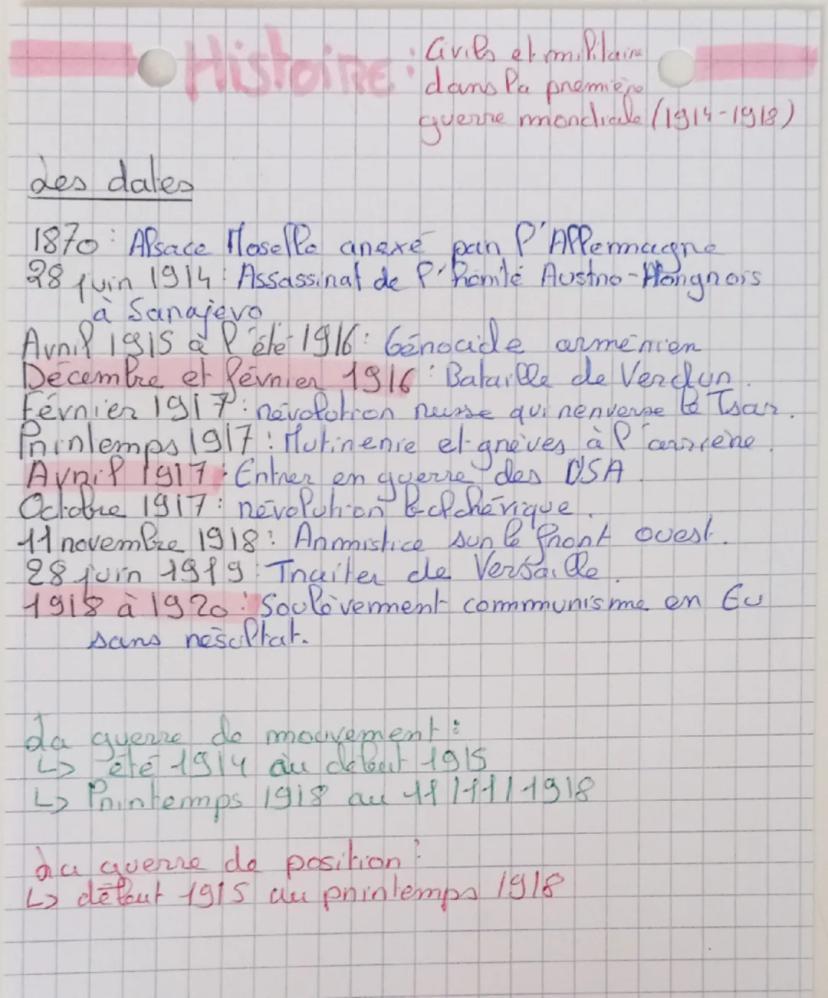 Histoire : Civils et militaire
dans la première
guerre mondiale (1914-1918)
Les dates
1870 : Alsace Moselle anexé par l'Allemagne
28 juin 1914 : Assassinat de l'héritié Austro-Hongrois
à Sarajevo
Avril 1915 à l'été 1916 : Génocide arménien
Décembre et février 1916 : Bataille de Verdun.
Février 1917 : révolution russe qui renverse le Tsar.
Printemps 1917 : Mutinerie et grèves à l'arrière.
Avril 1917 : Entrer en guerre des USA
Octobre 1917 : révolution Bolchévique.
11 novembre 1918 : Armistice sur le front ouest.
28 juin 1919 : Traiter de Versaille.
1918 à 1920 : Soulèvement communisme en Eu
sans résultat.
La guerre de mouvement :
↳ été 1914 au début 1915
↳ Printemps 1918 au 11/11/1918
La guerre de position :
↳ début 1915 au printemps 1918